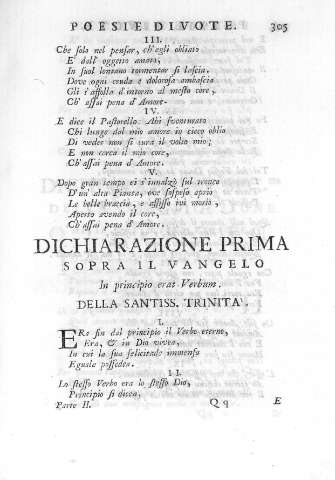 POESIE DIVOTE. 305
III.
Che solo nel pensar, ch'egli obliato
E dall' oggetto amato,
In suol lontano tormentar si lascia.
Dove ogni cruda e dolorosa ambascia
Gli s'affolla d'intorno al mesto core,
Ch' assai pena d'Amore.
IV.
E dice il Pastorello: Ahi sventurato
Chi lunge dal mio amore in cieco oblio
Di veder non si cura il volto mio;
E non cerca il mio core,
Ch' assai pena d'Amore.
V.
Dopo gran tempo ei s'innalzò sul tronco
D'un' alta Pianta, ove sospeso aprio
Le belle braccia, e affisso ivi morìo,
Aperto avendo il core,
Ch' assai pena d'Amore.
DICHIARAZIONE PRIMA
SOPRA IL VANGELO
In principio erat Verbum.
DELLA SANTISS. TRINITA'.
I.
ERa sin dal principio il Verbo eterno,
Era, & in Dio vivea,
In cui la sua felicitade immensa
Eguale possedea.
II.
Lo stesso Verbo era lo stesso Dio,
Principio si dicea,
Parte II. Qq E